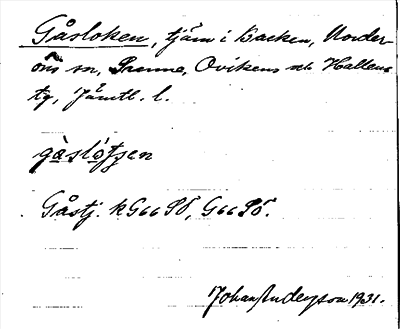 Gåsloken, tjärn i Backen, Norder-
öns sn, Sunne, Ovikens och Hallens
tg, Jämtl. l.
gàslò̱tjen
Gåstj. k G66 SÖ, G66 SÖ.
Johan Anderson 1931.